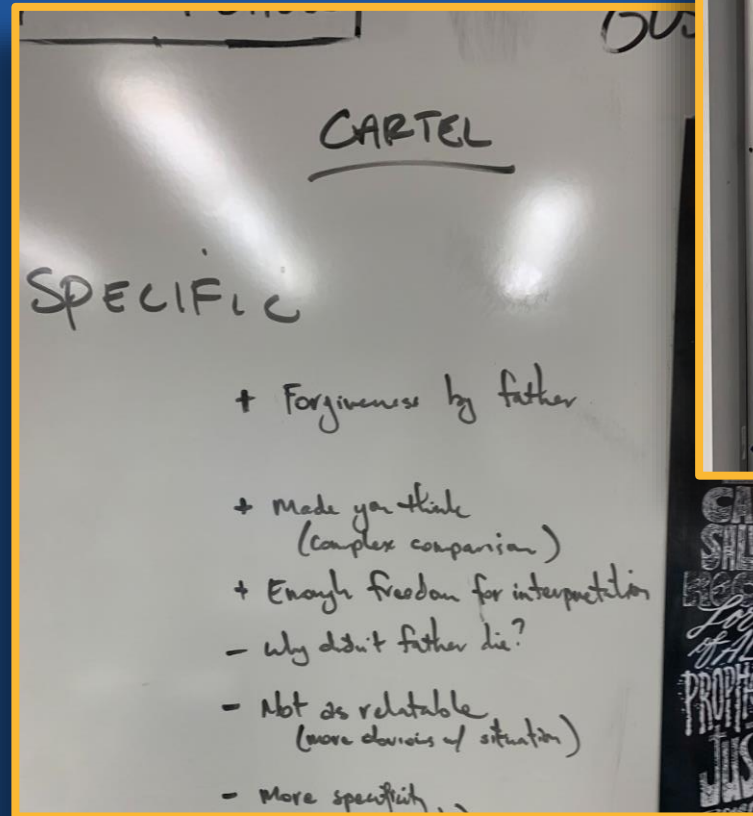 CARTEL
SPECIFIC
+ Forgiveness by father
+ Made you think
(complex comparison)
+ Enough freedom for interpretation
- Why didn't father die?
- Not as relatable
(more obvious w/ situation)
- More specificity
CA
PROPH
JUS